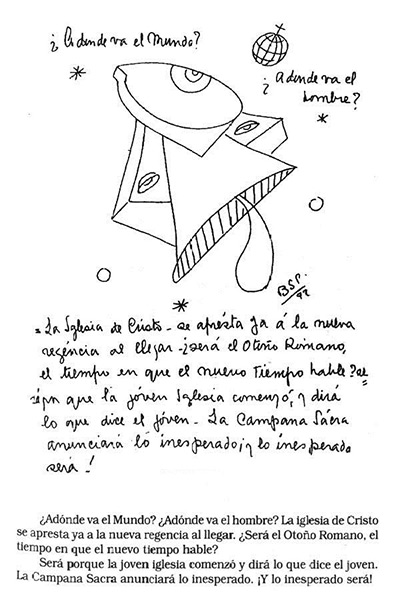 ¿Adonde va el Mundo?
¿Adonde va el
hombre?
BSP.
72
"La Iglesia de Cristo - se aprésta ya á la nueva
regéncia al llegar - ¿será el Otoño Romano,
el tiempo en que el nuevo Tiempo hable?
que la jóven Iglesia comenzó, y dirá
lo que dice el jóven. La Campana Sácra
anunciará ló inesperado ¡y lo inesperado
será -!
¿Adónde va el Mundo? ¿Adónde va el hombre? La iglesia de Cristo
se apresta ya a la nueva regencia al llegar. ¿Será el Otoño Romano, el
tiempo en que el nuevo tiempo hable?
Será porque la joven iglesia comenzó y dirá lo que dice el joven.
La Campana Sacra anunciará lo inesperado. ¡Y lo inesperado será!